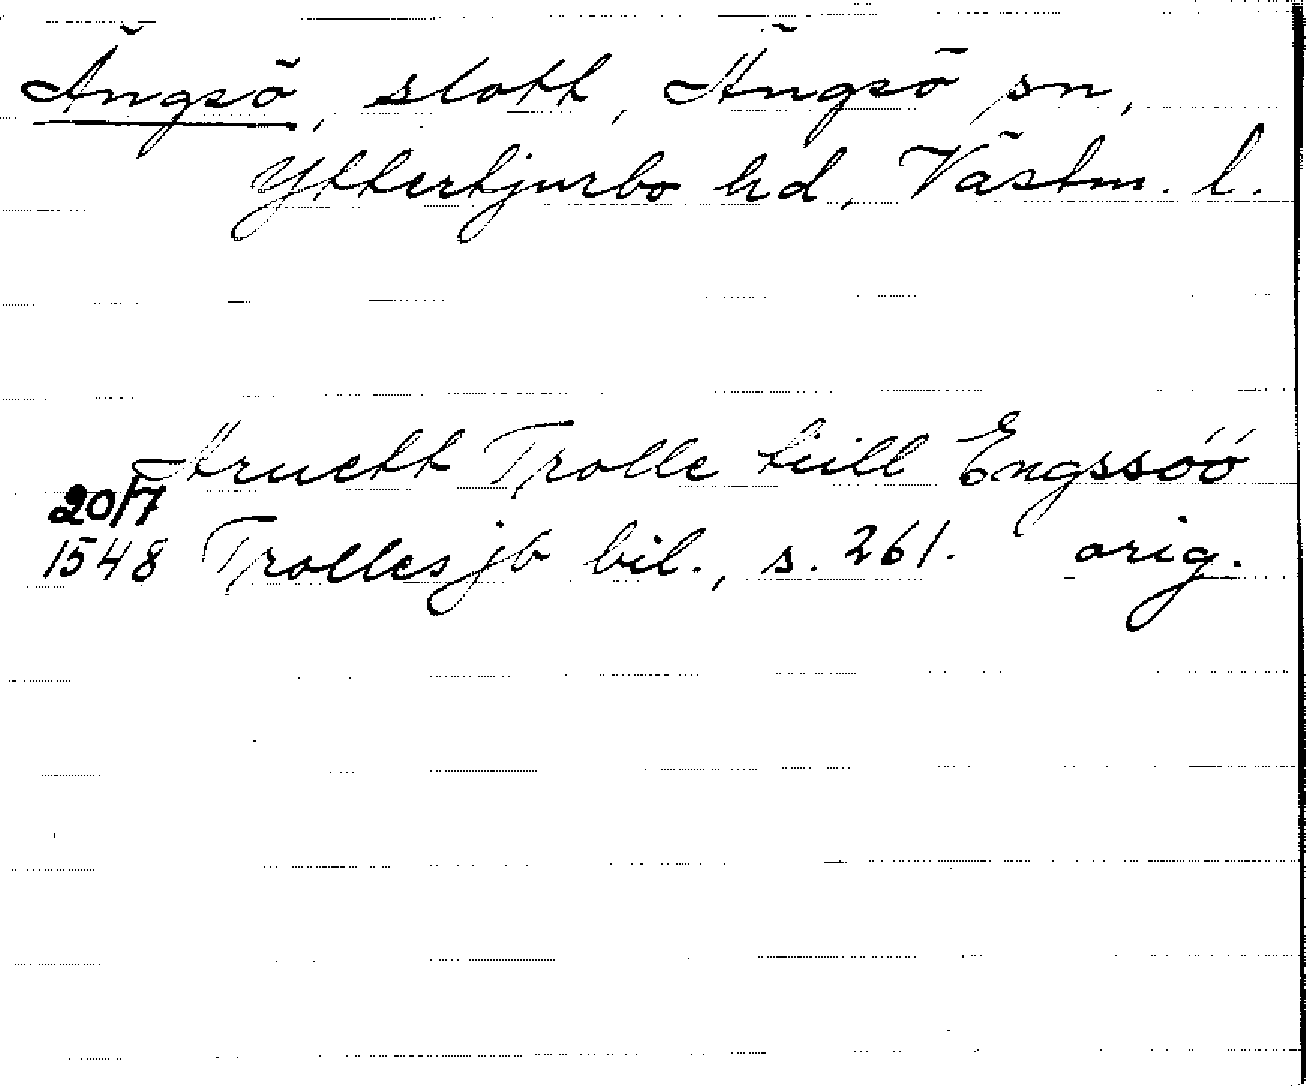 Ängsö, slott, Ängsö sn,
Yttertjurbo hd, Västm. l.
Aruett Trolle tiill Engssöö
20/7
1548 Trolles jb bil., s. 261. orig.